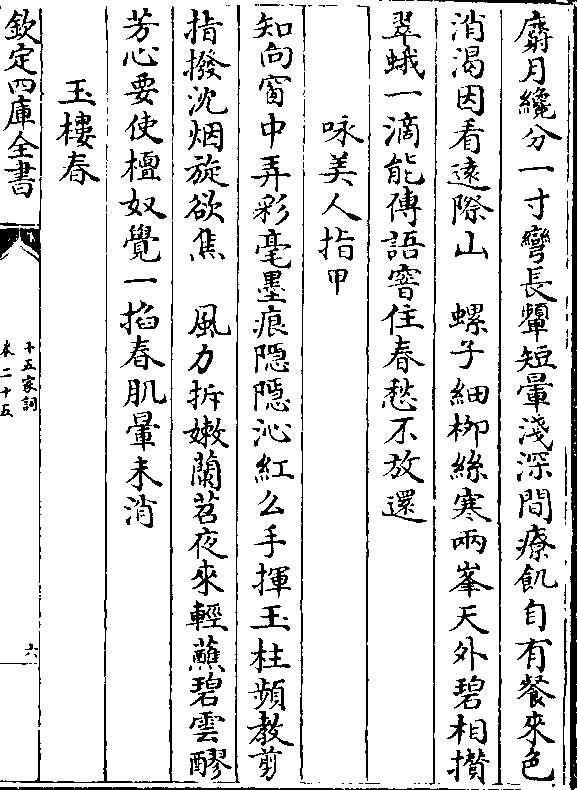 麝月纔分一寸彎長顰短暈淺深間療飢自有餐來色
消渴因看遠際山　螺子細柳絲寒兩峯天外碧相攢
翠蛾一滴能傳語窨住春愁不放還
咏美人指甲
知向窗中弄彩毫墨痕隱隱沁紅么手揮玉柱頻教剪
指撥沈烟旋欲焦　風力拆嫩蘭苕夜來輕蘸碧雲醪
芳心要使檀奴覺一掐春肌暈未消
玉樓春
欽定四庫全書
十五家詞
卷二十五
六